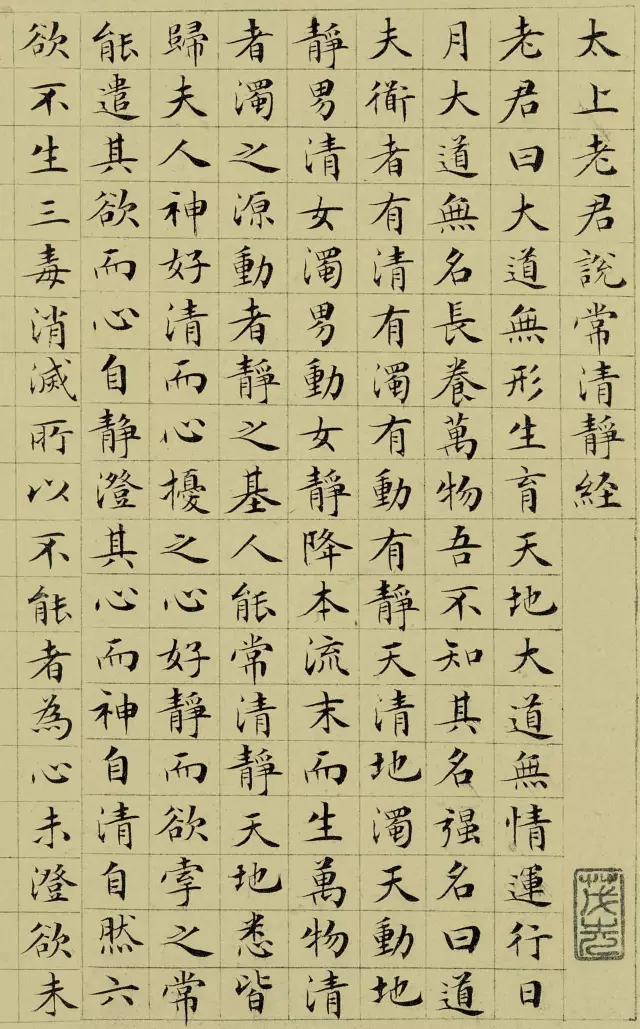 太上老君說常清靜経
老君曰大道無形生育天地大道無情運行日
月大道無名長養萬物吾不知其名强名曰道
夫衜者有清有濁有動有靜天清地濁天動地
靜男清女濁男動女靜降本流末而生萬物清
者濁之源動者靜之基人能常清靜天地悉皆
歸夫人神好清而心擾之心好靜而欲牽之常
能遣其欲而心自静澄其心而神自清自然六
欲不生三毒消滅所以不能者為心未澄欲未